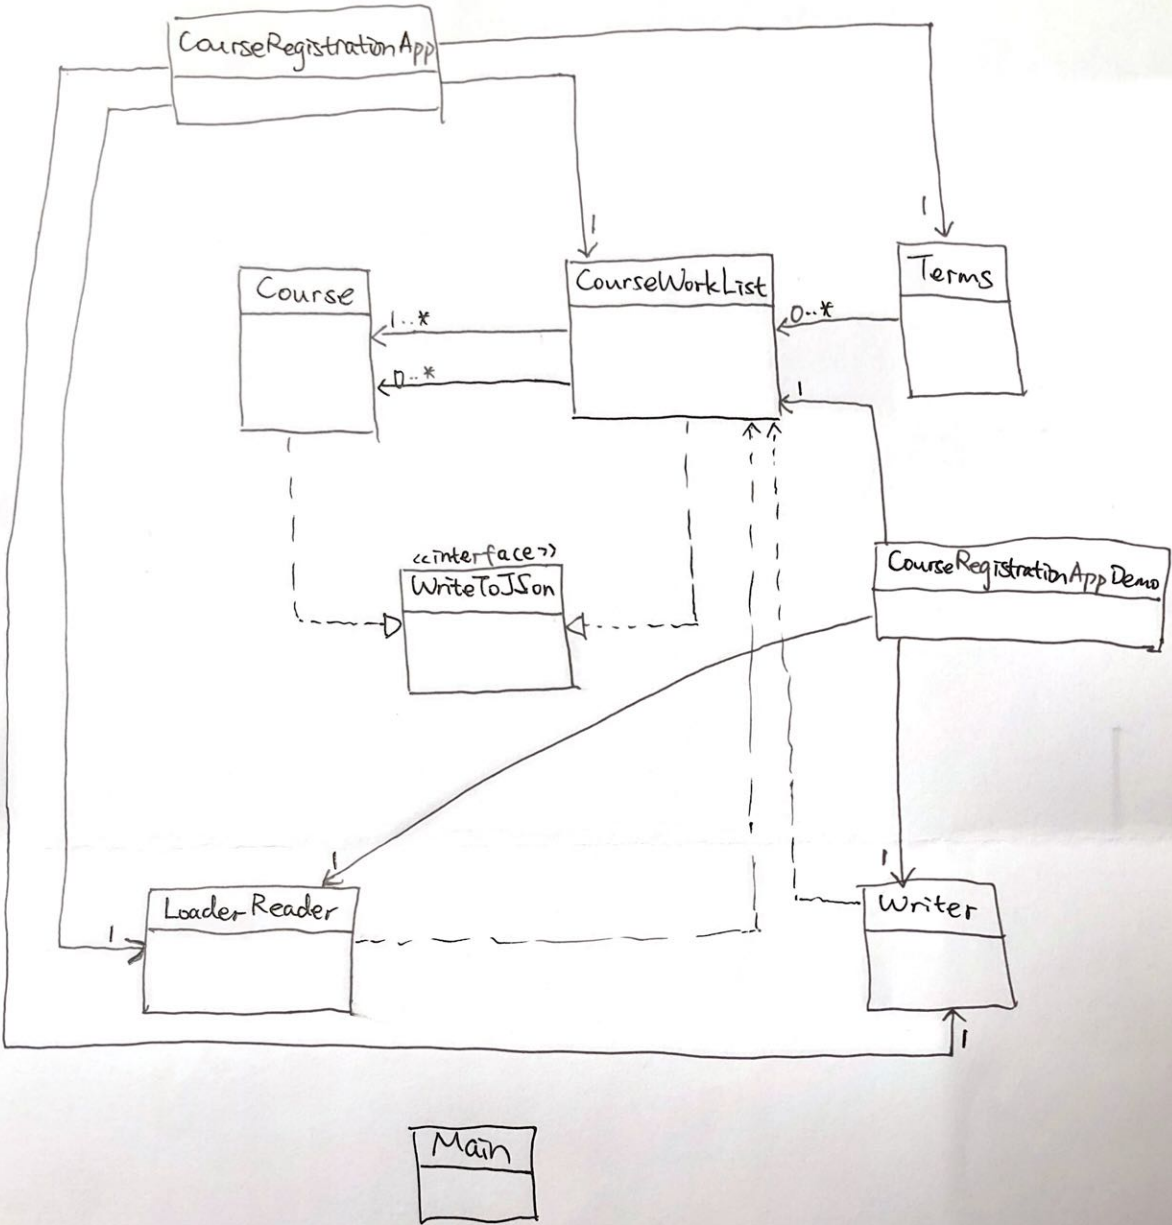 CourseRegistrationApp
1
1
Course
CourseWorkList
Terms
1..*
0..*
0..*
1
<<interface>>
WriteToJSon
CourseRegistrationAppDemo
1
1
LoaderReader
Writer
1
1
Main